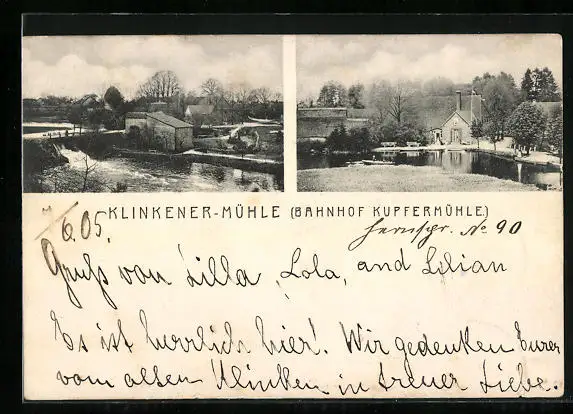 KLINKENER-MÜHLE (BAHNHOF KUPFERMÜHLE)
6.05. Fernspr. No 90
Gruß von Lilla, Lola, and Lilian
Es ist herrlich hier! Wir gedenken Eurer
vom alten Klinken in treuer Liebe.